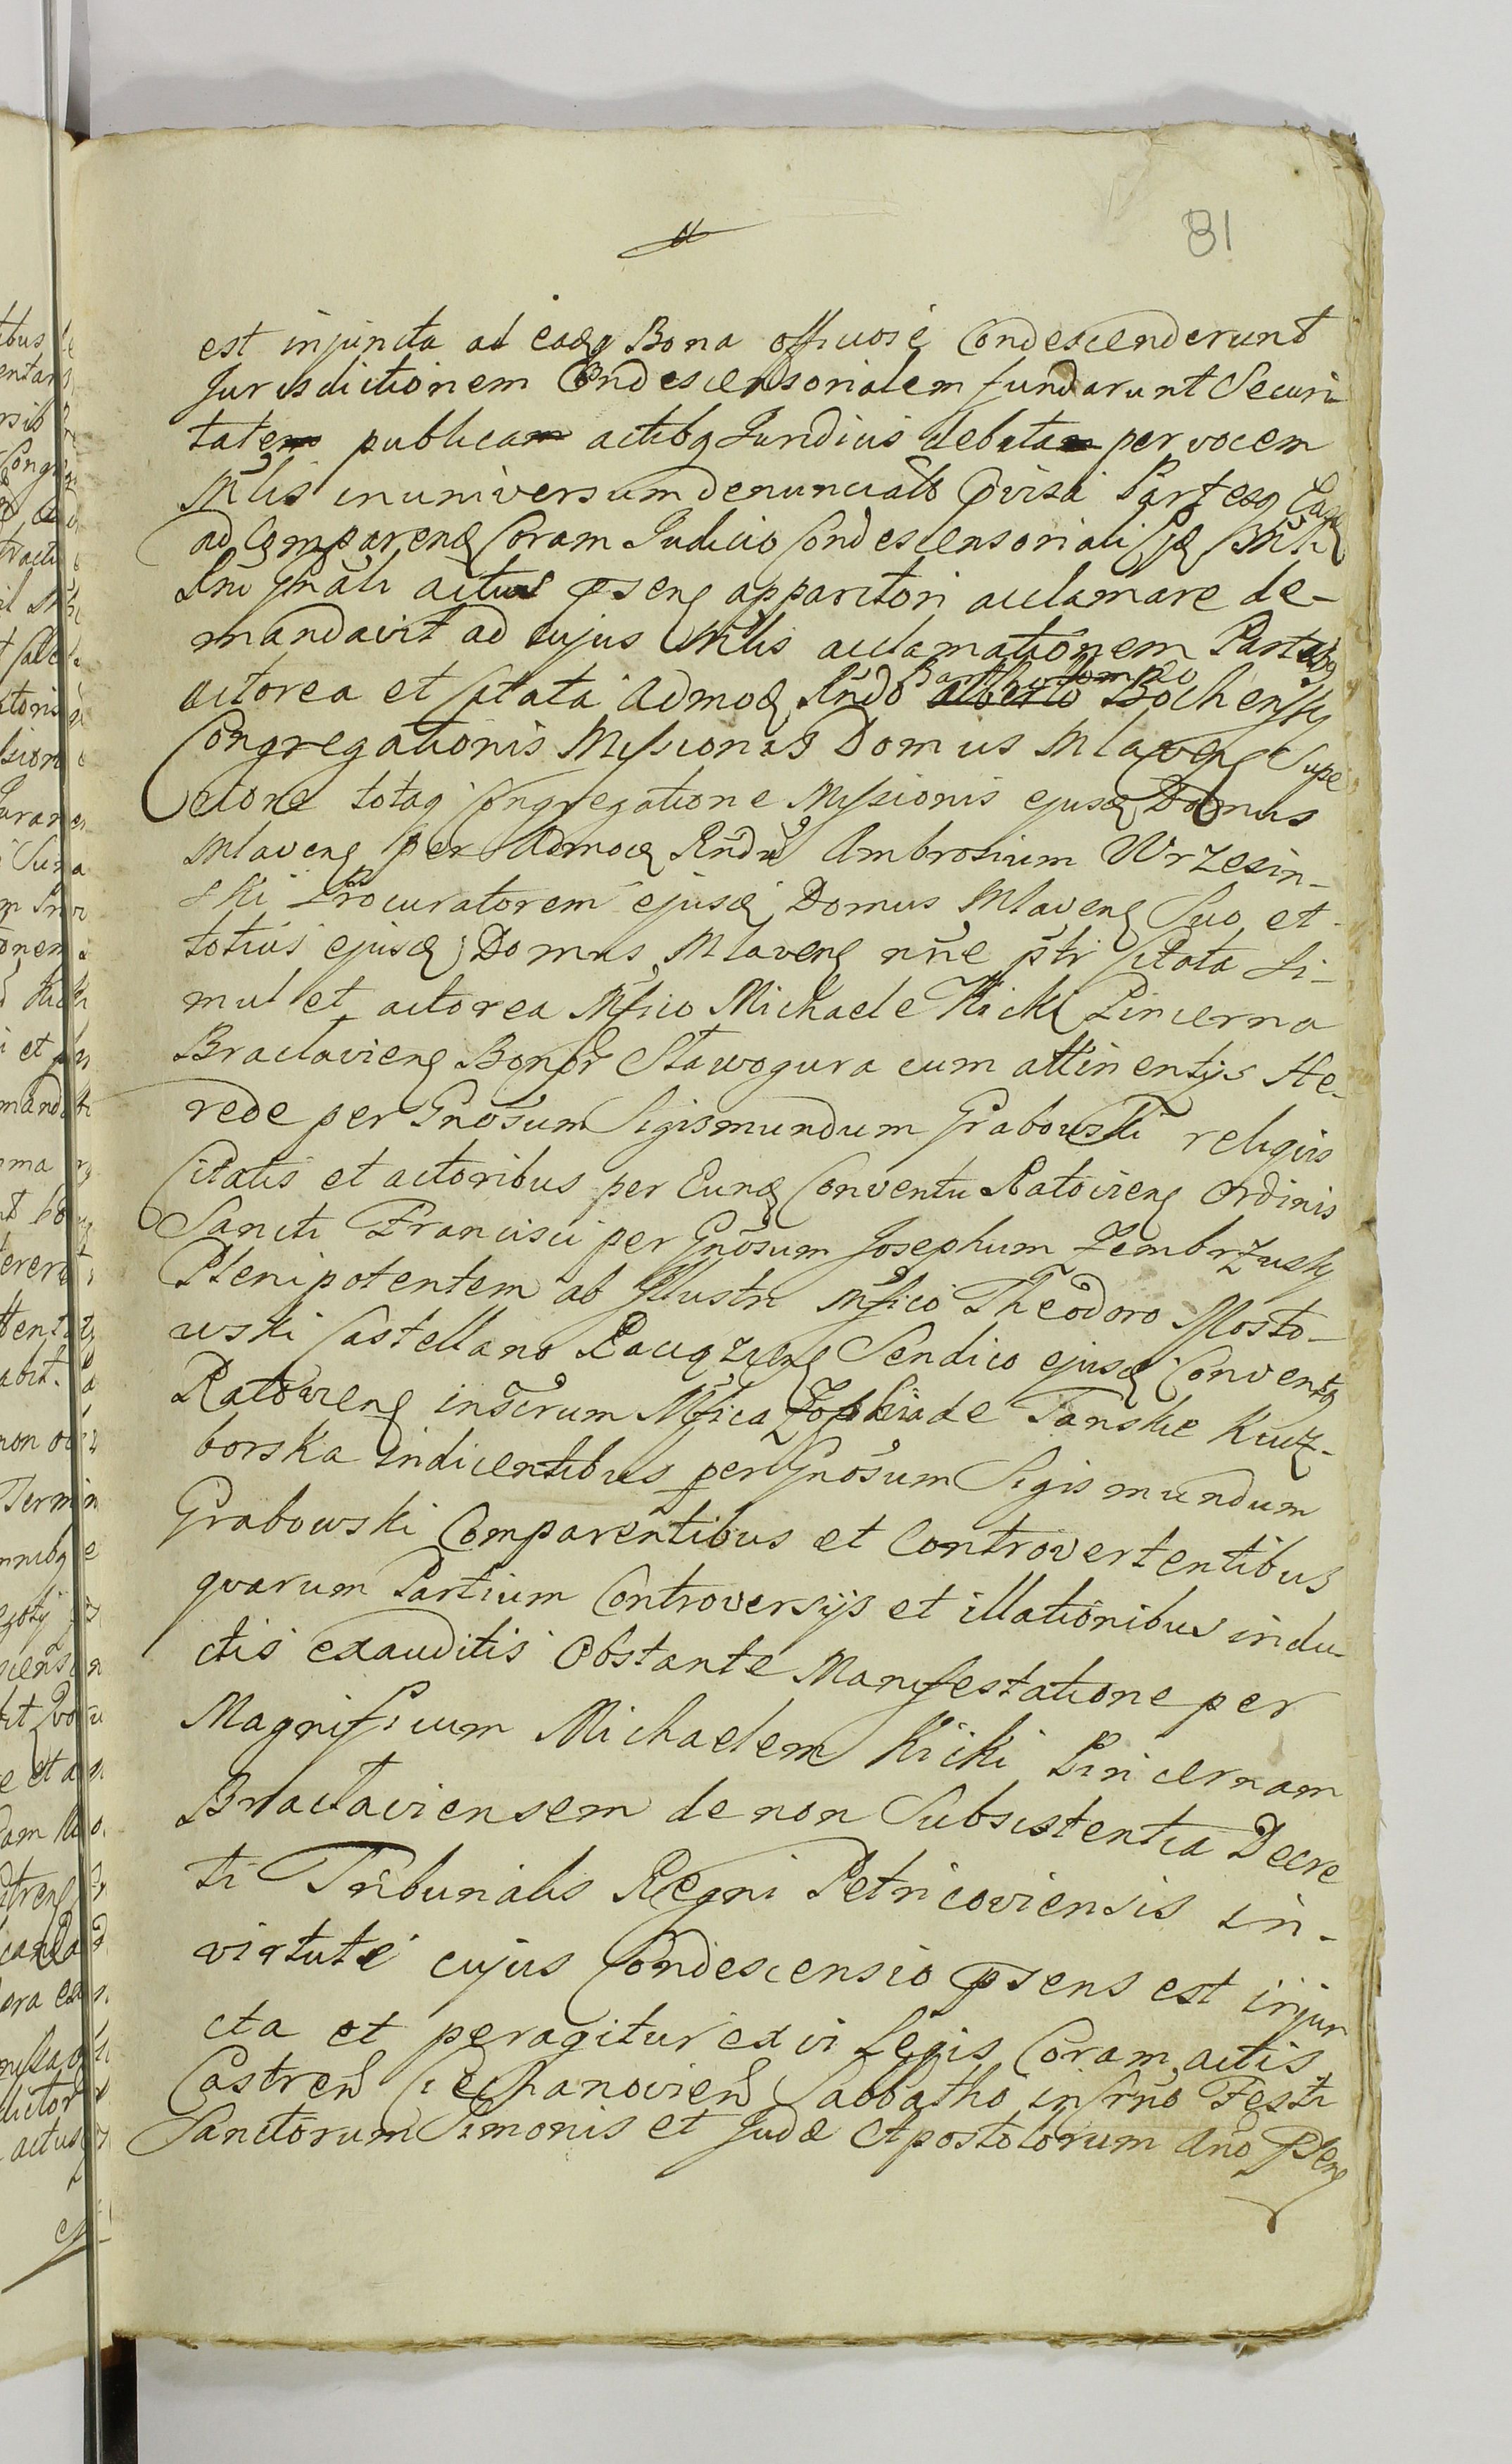 81
est injuncta ad eadq Bona officiosé Condescenderunt
Jurisdictionem Condescensorialem fundarunt Securi
tatem publicam actibq Juridicis debitam per vocem
Mlis in universum denunciats Partesq
ad Comparend Coram Judicio Condescensoriali
Regni Gnali actus pseng apparitori acclamare de-
mandavit ad cujus Mlis acclamationem Partibq
actorea et Citata Admod Rndo Alberto Bartholomeo Bochensky
Congregationis Missionis Domus Mlaveng Supe
riore totaq Congregatione Missionis ejusd Domus
Mlaveng per Admod Rndu Ambrosium Wrzesin-
ski Procuratorem ejusd Domus Mlaveng Suo et
totius ejusd Domus Mlaveng nne ptr Citata Si-
mul et actorea Mfico Michaele Kicki Pincerna
Braclavieng Bonor Stawogura cum attinentijs He-
rede per Gnosum Sigismundum Grabowski reliquis
Citatis et actoribus per Eund Conventu Ratovieng Ordinis
Sancti Francisci per Gnosum Josephum Zembrzusky
Plenipotentem ab Illustri Mfico Theodoro Mosto-
wski Castellano Raciązieng Sendico ejusd Conventq
Ratovieng insērum Mfica Zophia de Tanskie Kucz-
borska Indicentibus per Gnosum Sigismundum
Grabowski Comparentibus et Controvertentibus
quarum Partium Controversijs et illationibus indu-
ctis exauditis Obstante Manifestatione per
Magnificum Michaelem Kicki Pincernam
Braclaviensem de non Subsistentia Decre
ti Tribunalis Regni Petricoviensis in-
virtute cujus Condescensio psens est injun
cta et peragitur ex vi Legis Coram actis
Castren Ciechanovien Sabbatho in Crno Festi
Sanctorum Simonis et Judæ Apostolorum Ano Pseng